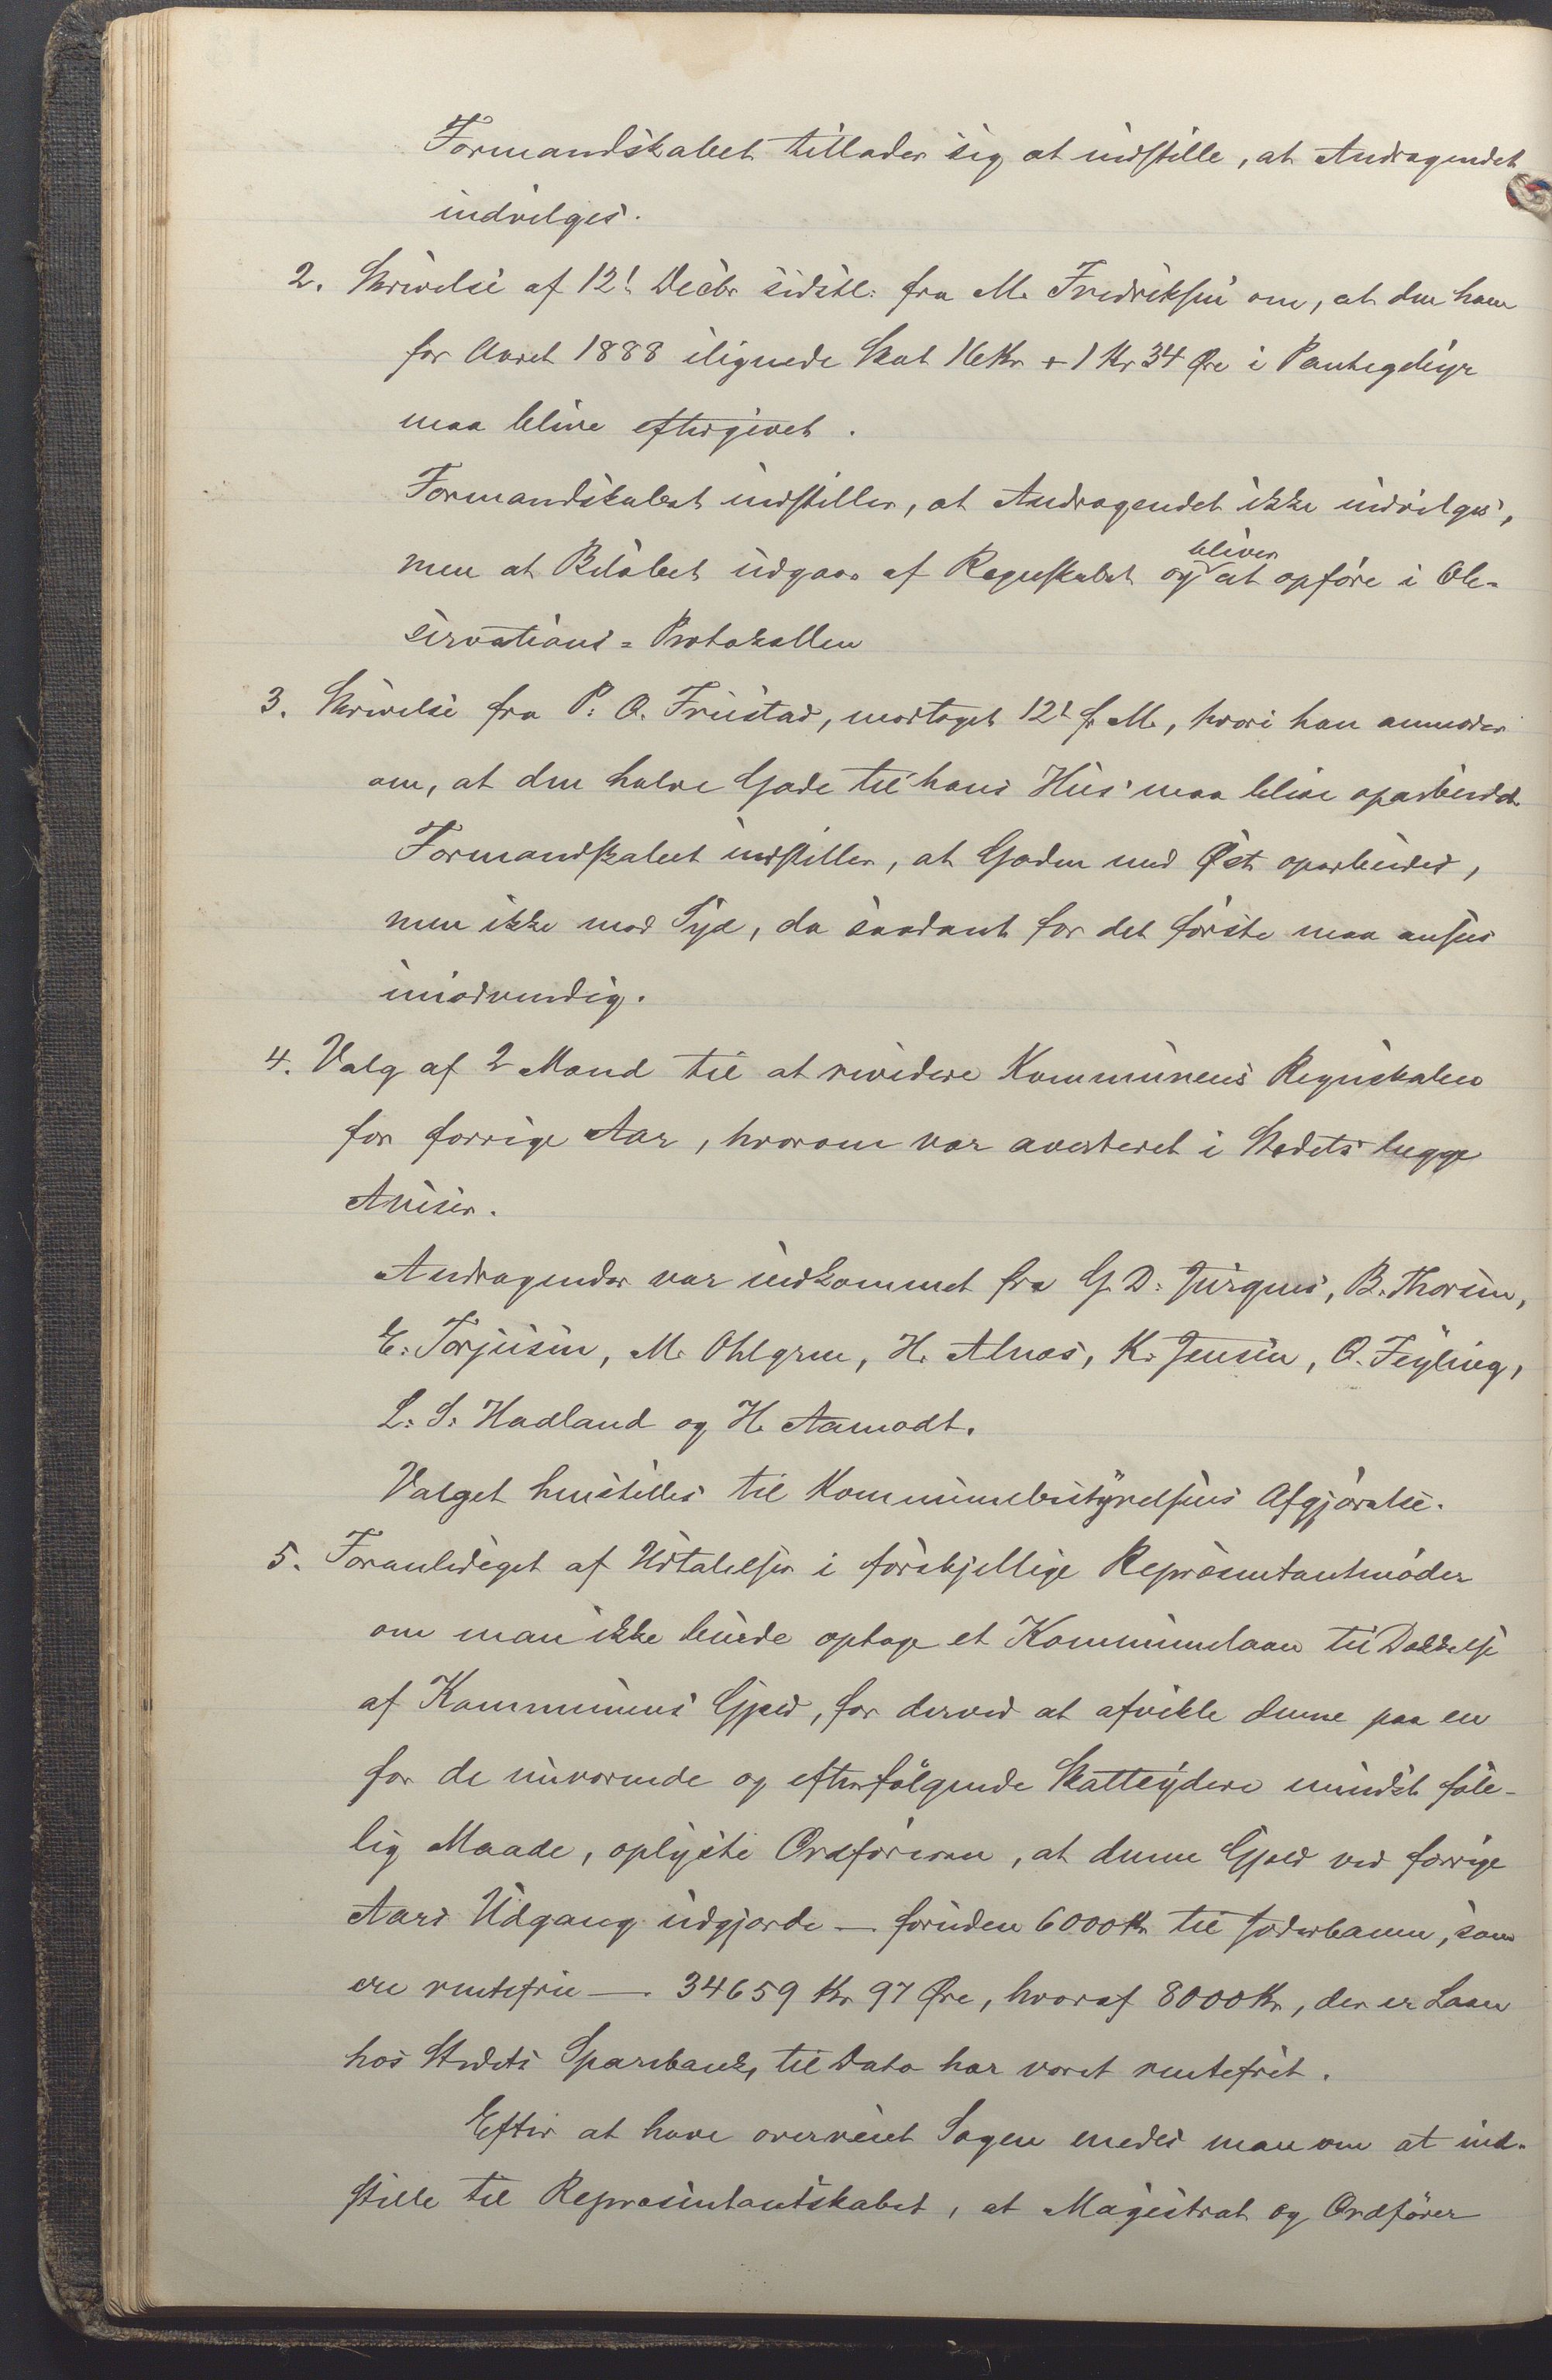 Formandskabet tillader sig at indstille, at Andragendet
indvilges.
2. Skrivelse af 12t Decbr sidstl. fra M. Fredriksen om, at den ham
for Aaret 1888 ilignede Skat 16 Kr + 1 Kr 34 Øre i Pantegebyr
maa blive eftergivet.
Formandskabet indstiller, at Andragendet ikke indvilges,
men at Beløbet udgaar af Regnskabet og bliver at opføre i Ob-
servations=Protokollen
3. Skrivelse fra P. O. Frustad, modtaget 12t f. M., hvori han anmoder
om, at den halve Gade til hans Hus maa blive oparbeidet
Formandskabet indstiller, at Gaden mod Øst oparbeides,
men ikke mod Syd, da saadant for det første maa ansees
unødvendig.
4. Valg af 2 Mænd til at revidere Kommunens Regnskaber
for forrige Aar, hvorom var averteret i Stedets begge
Aviser.
Andragender var indkommet fra G. D. Jürgens, B. Thorsen,
E. Torjusen, M. Ohlgren, H. Alnæs, K. Jensen, O. Feyling,
L. S. Hadland og H. Aamodt.
Valget henstilles til Kommunebestyrelsens Afgjørelse.
5. Foranlediget af Udtalelser i forskjellige Repræsentantmøder
om man ikke burde optage et Kommunelaan til Dækkelse
af Kommunens Gjæld, for derved at afvikle denne paa en
for de nuværende og efterfølgende Skatteydere mindst føle-
lig Maade, oplyste Ordføreren, at denne Gjæld ved forrige
Aars Udgang udgjorde — foruden 6000 Kr til Jæderbanen, som
ere rentefrie — 34659 Kr 97 Øre, hvoraf 8000 Kr, der er Laan
hos Stedets Sparebank, til Dato har været rentefrit.
Efter at have overveiet Sagen enedes man om at ind-
stille til Repræsentantskabet, at Magistrat og Ordfører